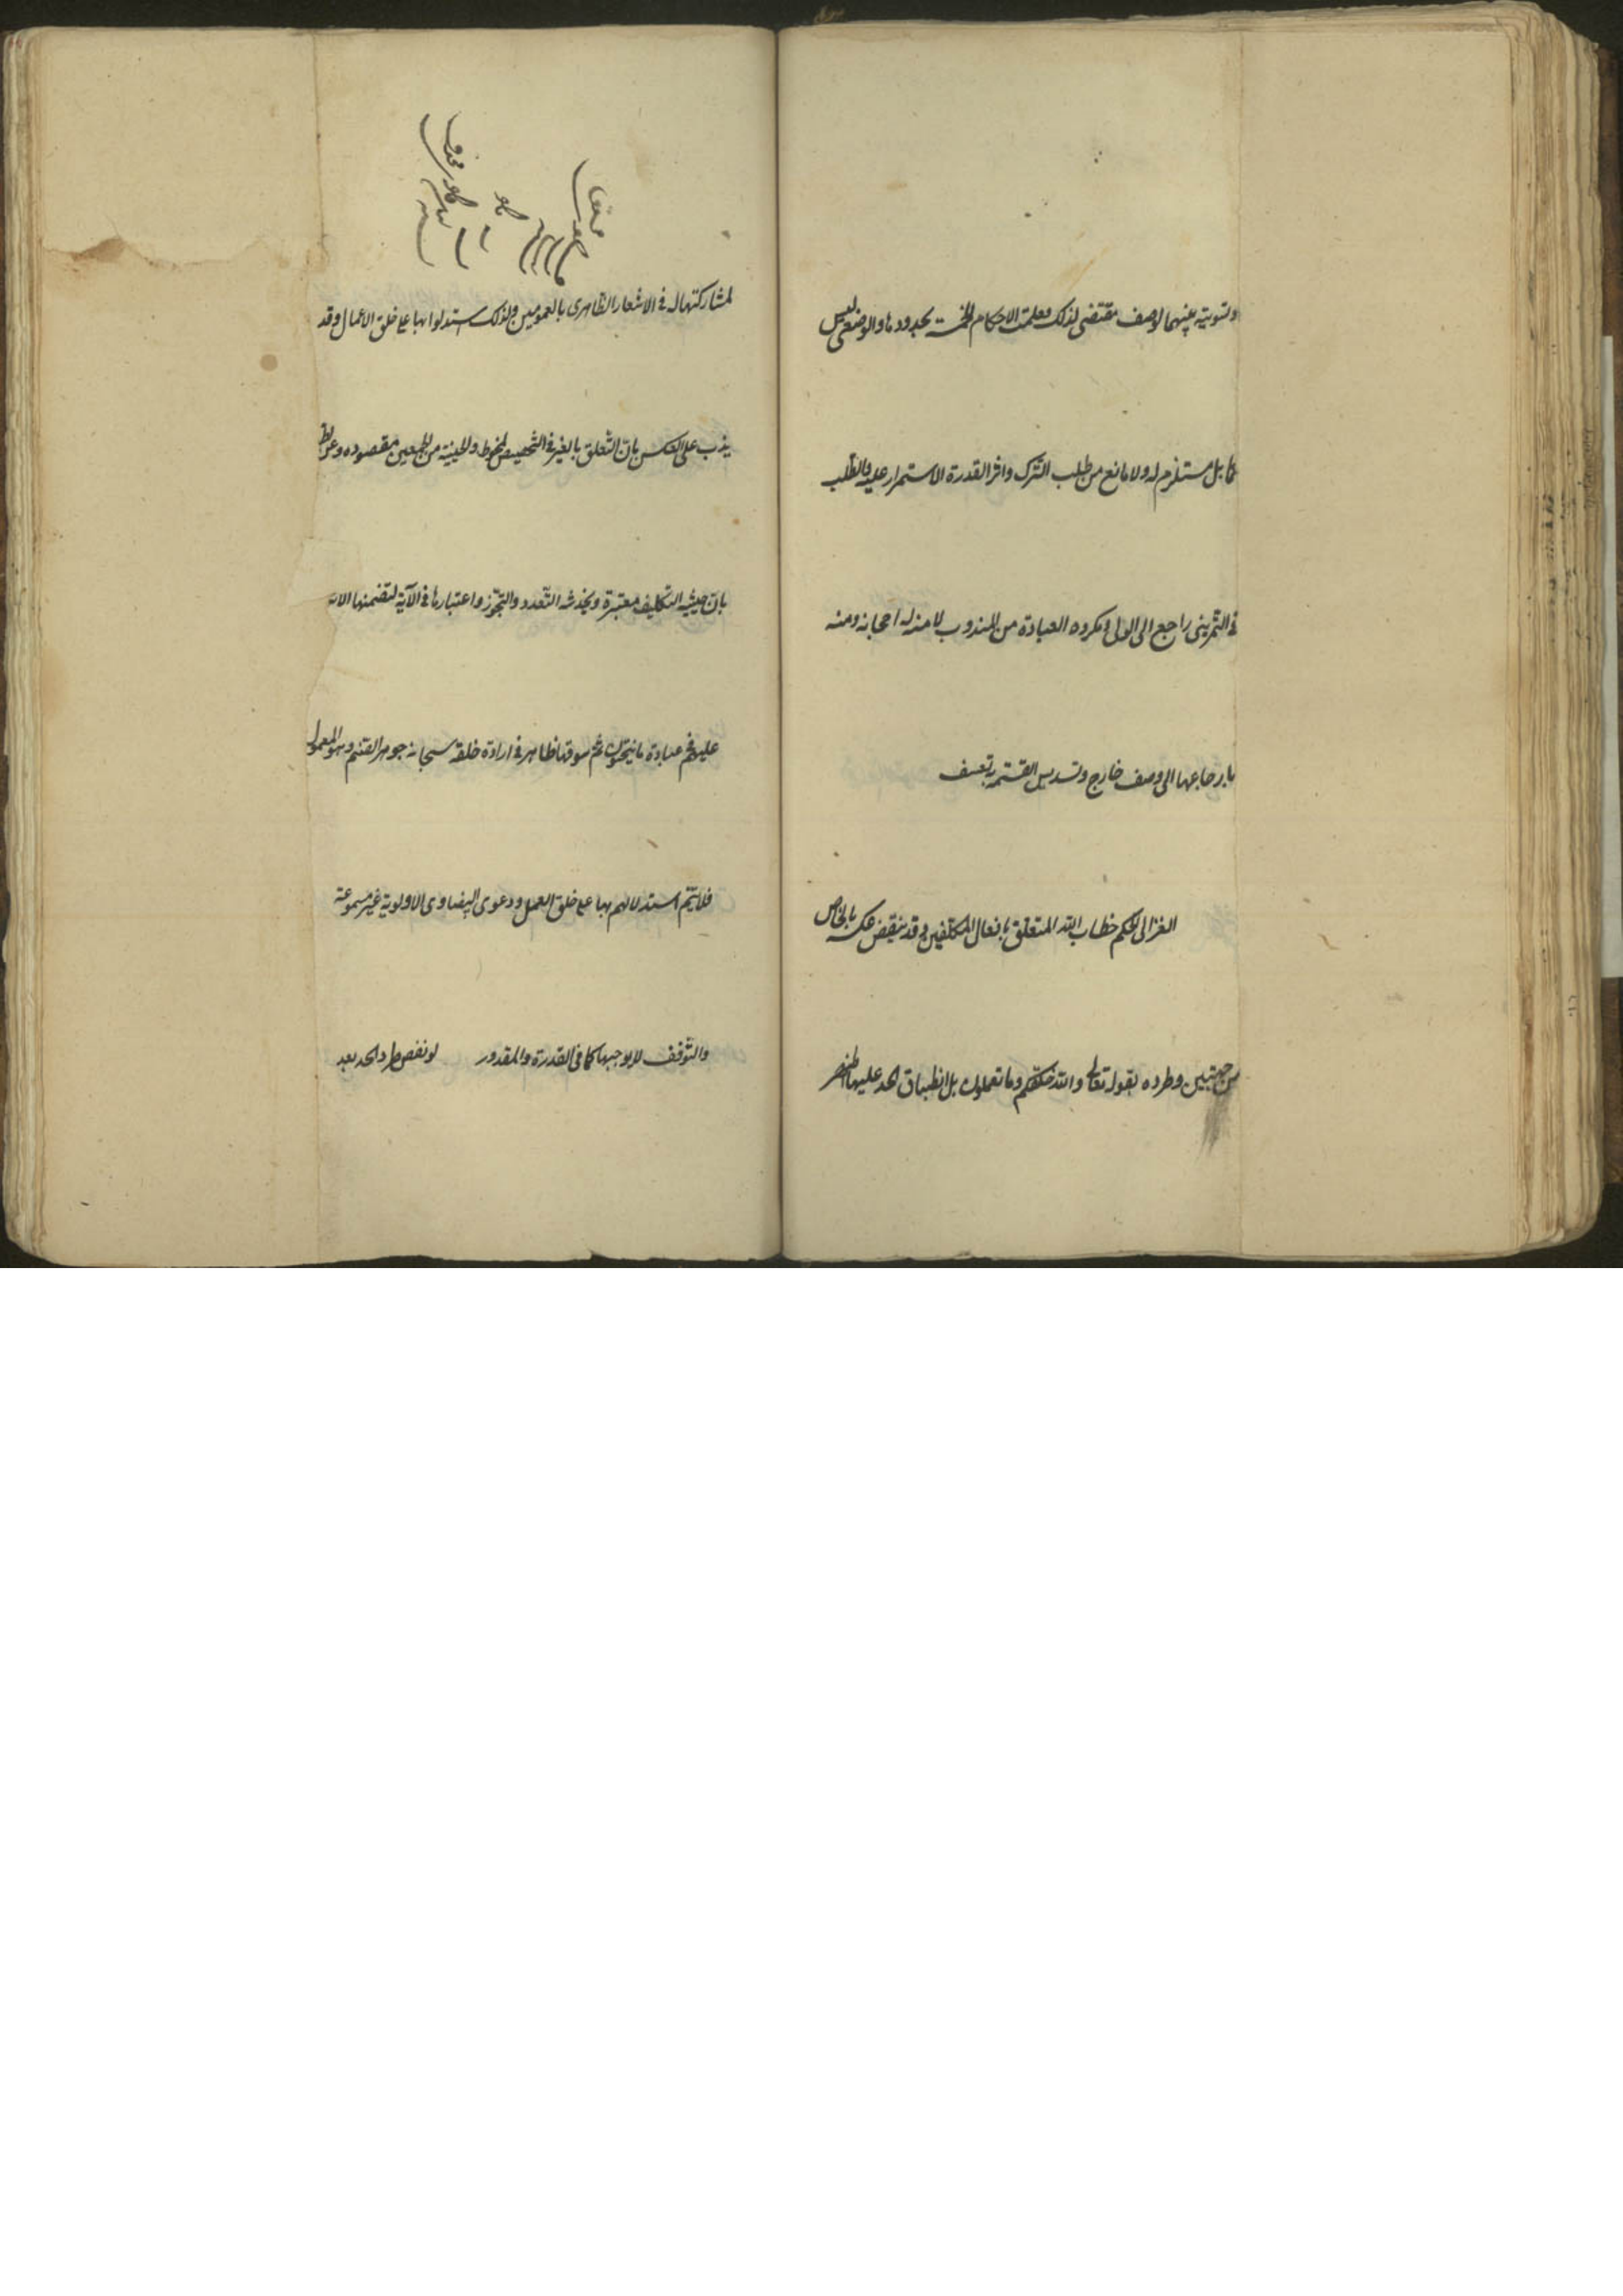 وتسويته بينهما لوصف مقتضى لذلك فعلمت الاحكام الخمسة بحدودها والوضعى ليس
حكما بل مستلزم له ولا مانع من طلب الترك واثر القدرة الاستمرار عليه والطلب
فى التمرينى راجع الى الولى ومكروه العبادة من المندوب لا منه لرجحانه ومنه
بارجاعها الى وصف خارج وتسديس القسمة تعسف
الغزالى الحكم خطاب الله المتعلق بافعال المكلفين وقد ينقض عكسه بالخواص
من جهتين وطرده بقوله تعالى والله خلقكم وما تعملون بل انطباق الحد عليها اظهر
لمشاركتها له فى الاشعار الظاهرى بالعمومين ولذلك استدلوا بها على خلق الاعمال وقد
يذب على العكس بان التعلق بالغير فى التخصيص ملحوظ والحيثية من الجمعين مقصوده وعن الطرد
بان حيثية التكليف معتبرة ويخدشه التعدد والتجوز واعتبارها فى الآية لتضمنها الانكار
عليهم فى عبادة ما ينحتون ثم سوقها ظاهر فى ارادة خلقه سبحانه جوهر الصنم وهو المعمول
فلا يتم استدلالهم بها على خلق العمل ودعوى البيضاوى الاولوية غير مسموعة
والتوقف لا يوجبها كما فى القدرة والمقدور لو نقض طرد الحد بعد